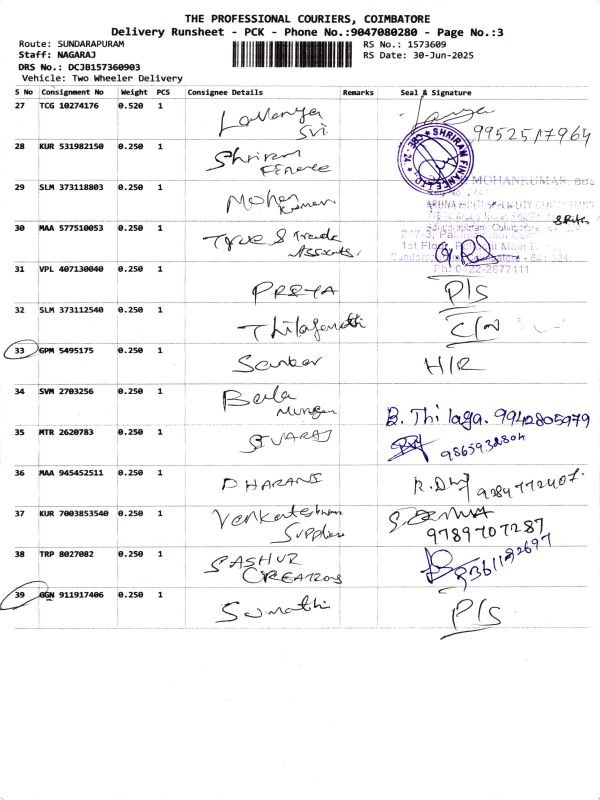 THE PROFESSIONAL COURIERS, COIMBATORE
Delivery Runsheet - PCK - Phone No.:9047080280 - Page No.:3
Route: SUNDARAPURAM
RS No.: 1573609
Staff: NAGARAJ
RS Date: 30-Jun-2025
DRS No.: DCJB157360903
Vehicle: Two Wheeler Delivery
S No Consignment No Weight PCS Consignee Details Remarks Seal & Signature
27 TCG 10274176 0.520 1
Sri 9952517964
28 KUR 531982150 0.250 1 Shriram
29 SLM 373118803 0.250 1 Mohan Kumar MOHANKUMAR
30 MAA 577510053 0.250 1
1st Floor
Ph: 0422-2677111
31 VPL 407130040 0.250 1 PREYA P/S
32 SLM 373112540 0.250 1 C/N
33 GPM 5495175 0.250 1 Sankar H/R
34 SVM 2703256 0.250 1 Bala
Murugan B. Thilaga. 9942805979
35 MTR 2620783 0.250 1 SIVARAJ
9865932804
36 MAA 945452511 0.250 1 DHARANI 9289772407.
37 KUR 7003853540 0.250 1 Venkateshwara
Suppliers 9789707287
38 TRP 8027082 0.250 1 SASHUR
CREATIONS 9361192697
39 GGN 911917406 0.250 1 Sumathi P/S